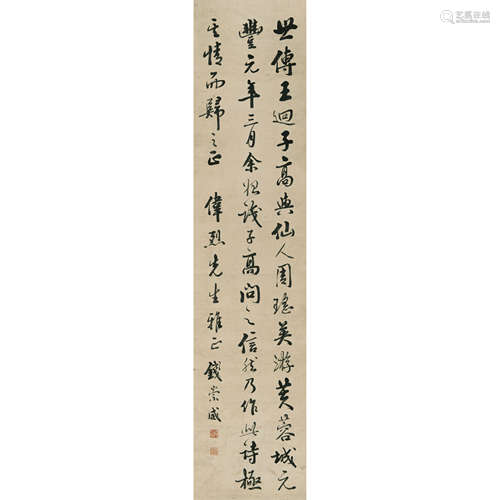 世傳王迥子高與仙人周瑤英游芙蓉城元
豐元年三月余始識子高問之信然乃作此詩極
其情而歸之正 偉烈先生雅正 錢崇威